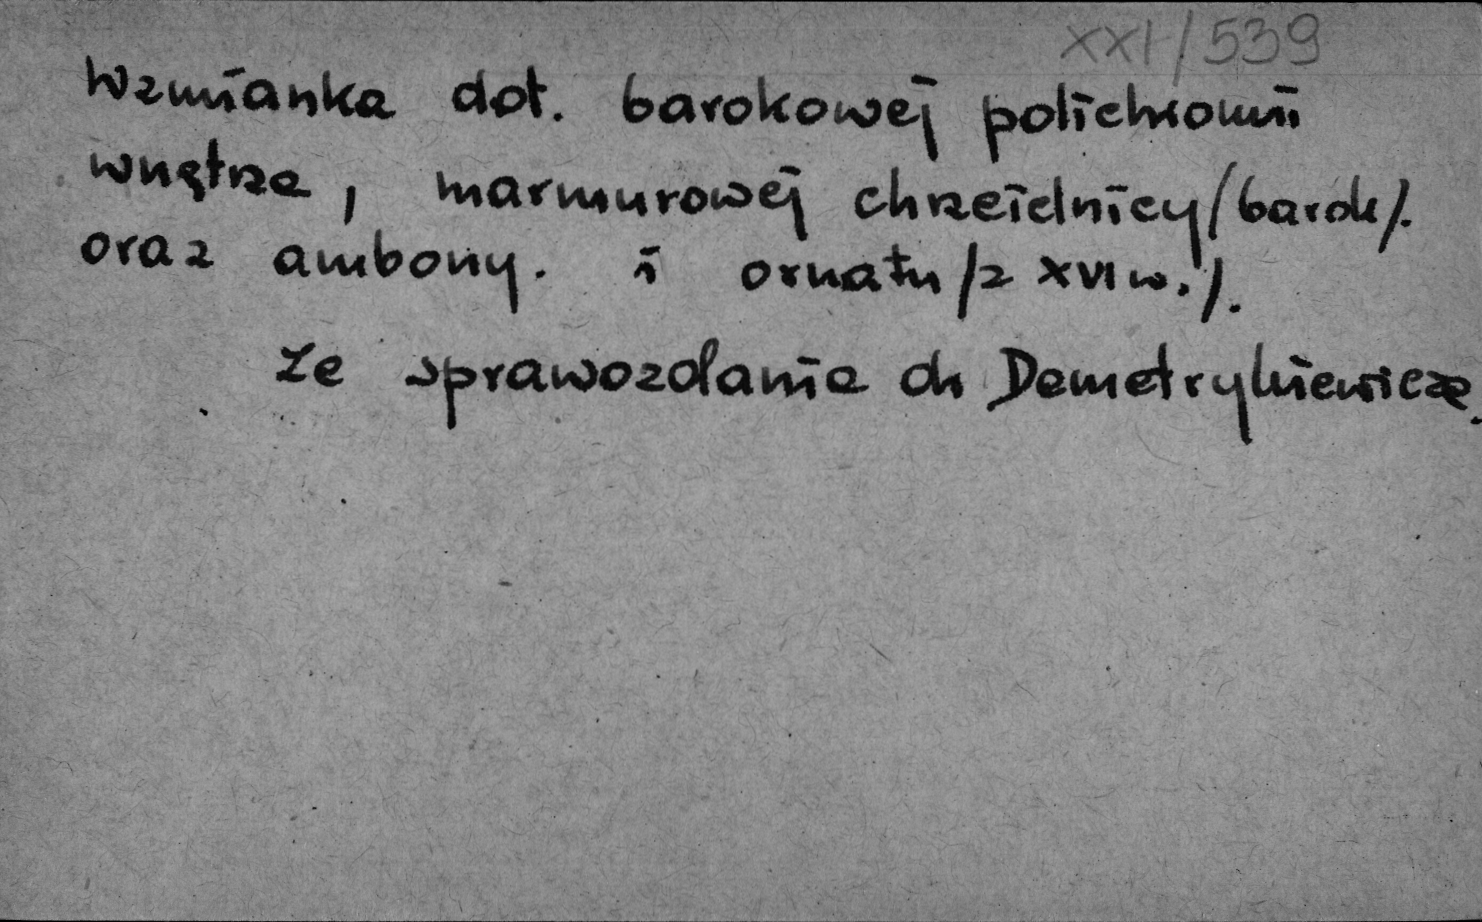 XXI/539
Wzmianka dot. barokowej polichromii
wnętrza, marmurowej chrzcielnicy /barok/.
oraz ambony. i ornatu /z XVI w./.
Ze sprawozdania dr Demetrykiewicza.